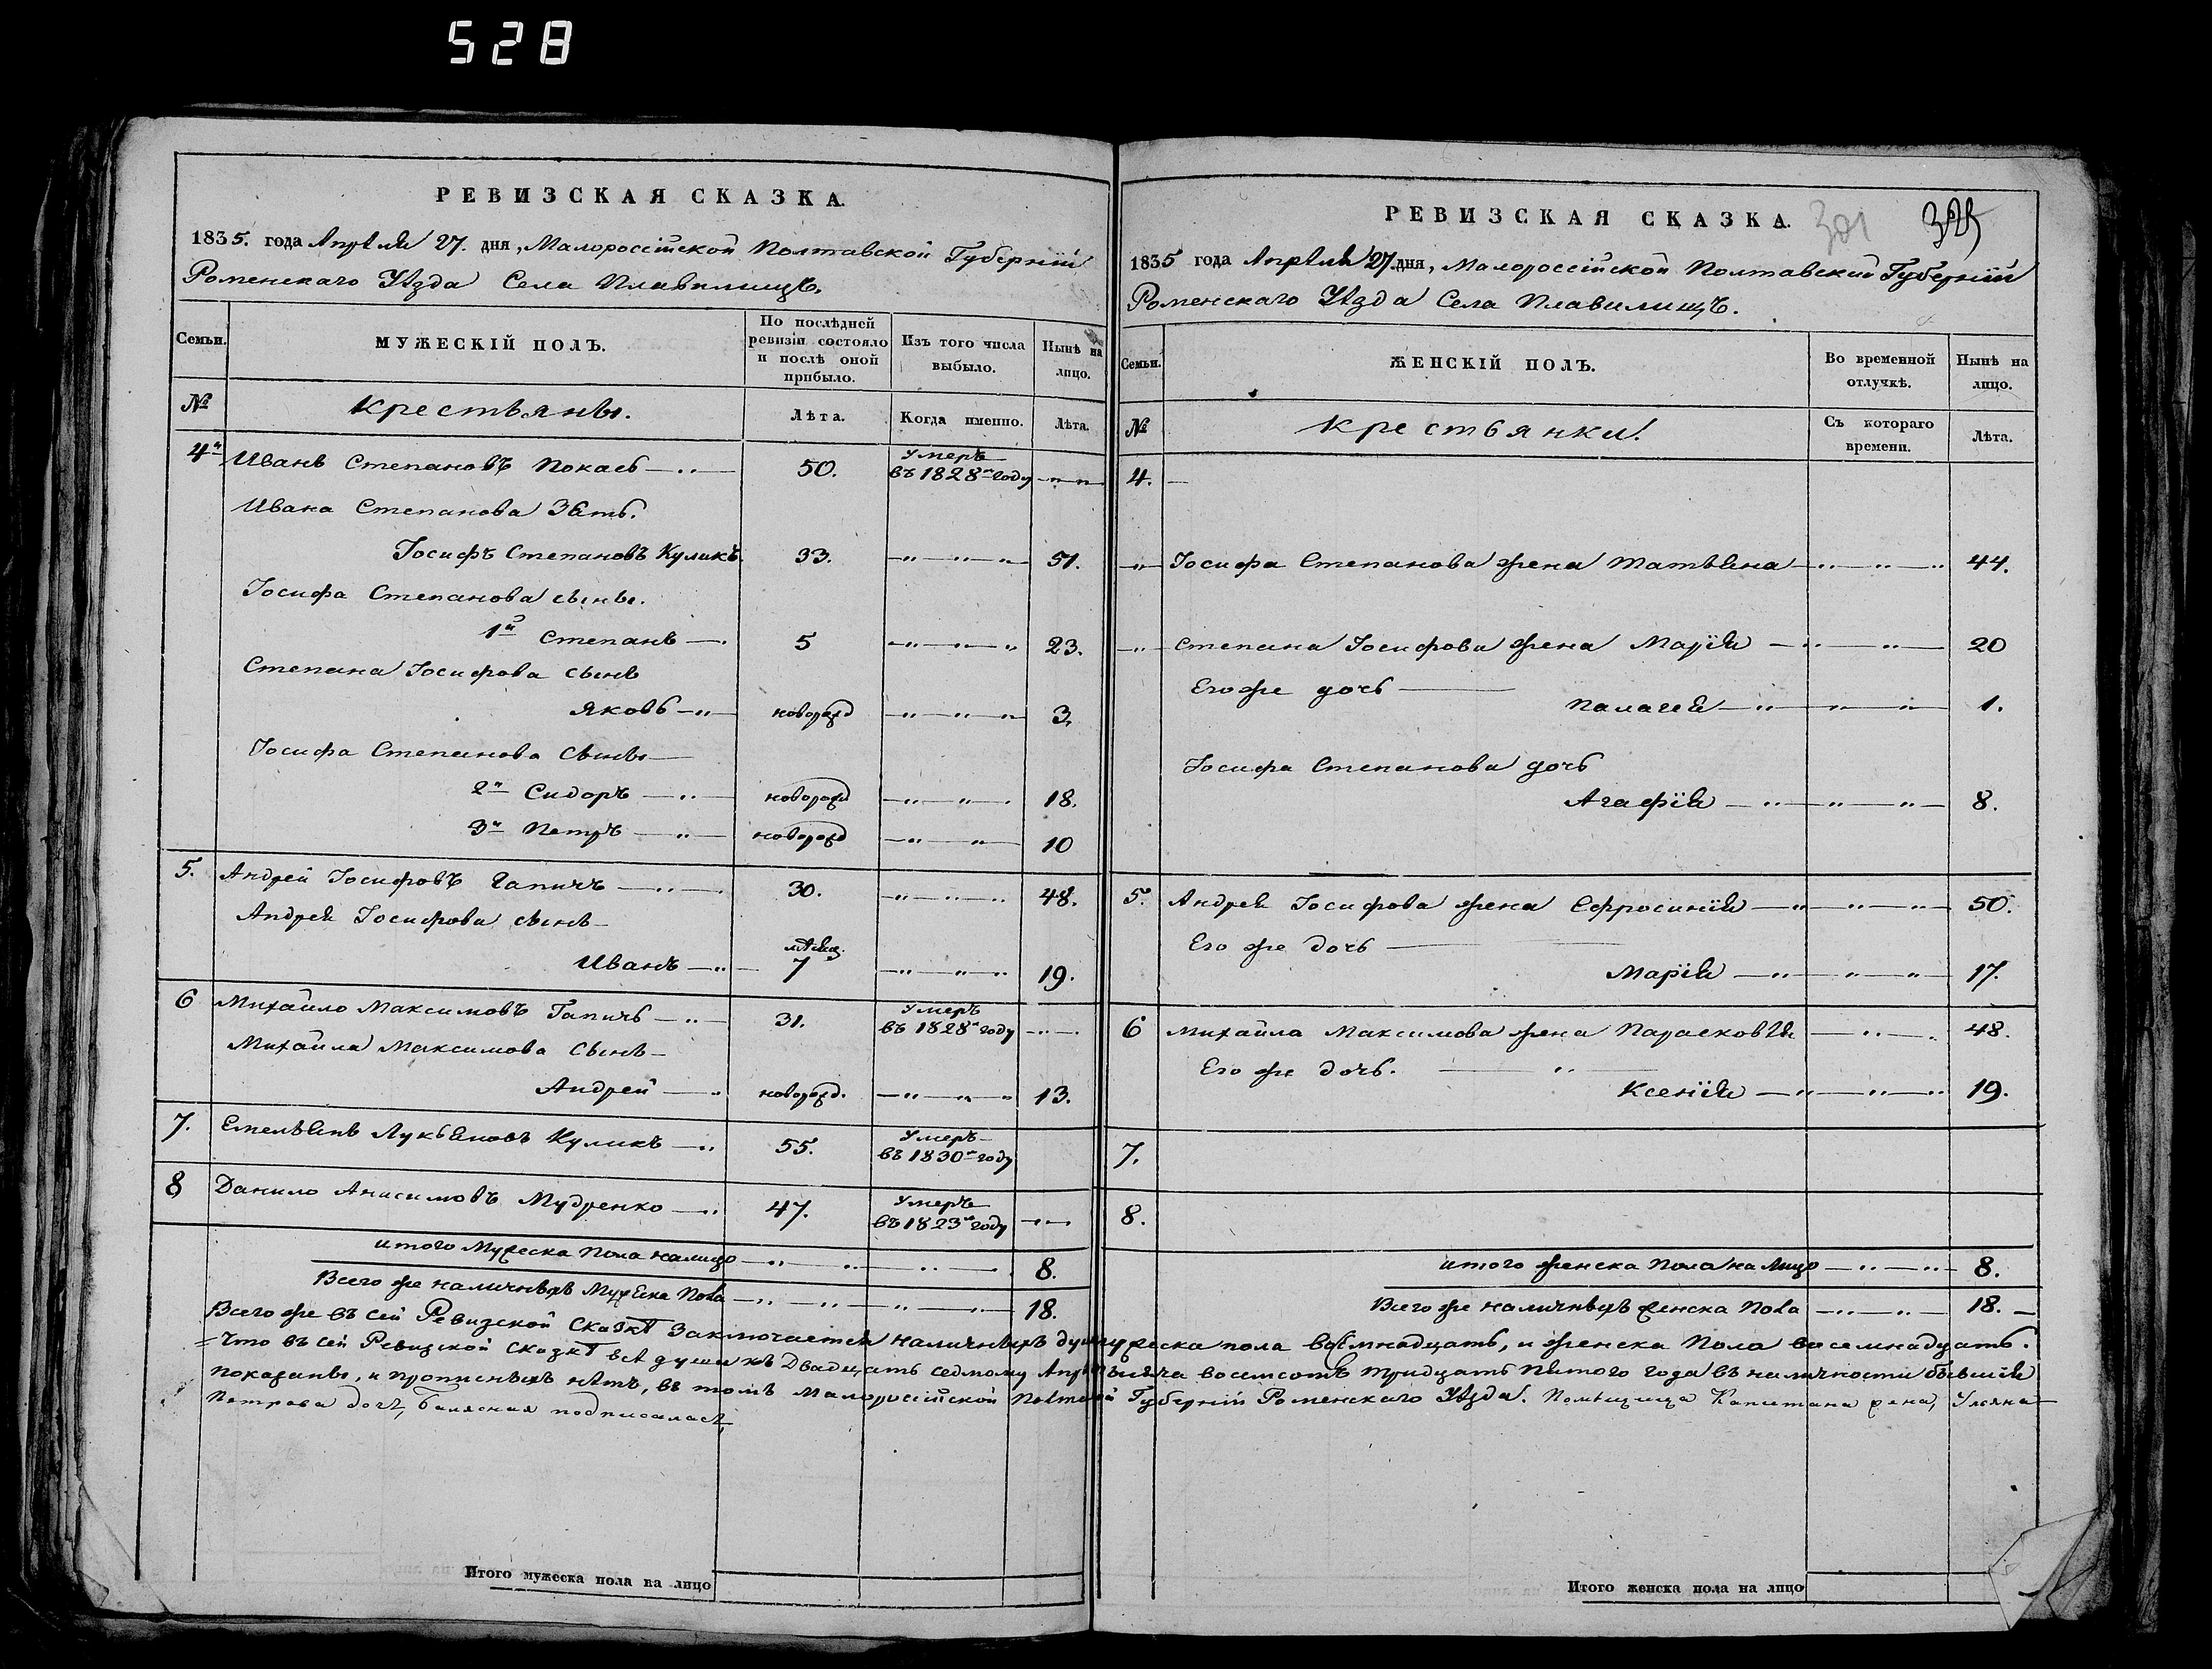 528
РЕВИЗСКАЯ СКАЗКА.
1835. года Апрѣля 27. дня, Малороссійской Полтавской Губерніи
Роменскаго Уѣзда Села Плавилищъ.
Семьи.
МУЖЕСКІЙ ПОЛЪ.
По послѣдней ревизіи состояло и послѣ оной прибыло.
Изъ того числа выбыло.
Нынѣ на лицо.
№
Крестьяны.
Лѣта.
Когда именно.
Лѣта.
4й Иванъ Степановъ Покась 50. Умеръ въ 1828м году
Ивана Степанова Зять.
Іосифъ Степановъ Куликъ. 33. 51.
Іосифа Степанова сыны.
1й Степанъ 5 23.
Степана Іосифова сынъ
Яковъ новорожд 3.
Іосифа Степанова Сыны
2й Сидоръ новорожд 18.
3й Петръ новорожд 10
5. Андрей Іосифовъ Гапичъ 30. 48.
Андрея Іосифова сынъ
Иванъ мѣсяц. 7 19.
6 Михайло Максимовъ Гапичь 31. Умеръ въ 1828м году
Михайла Максимова Сынъ
Андрей новорожд. 13.
7. Емельянъ Лукьяновъ Куликъ 55. Умеръ въ 1830м году
8 Данило Анисимовъ Мудренко 47. Умеръ въ 1823м году
итого Мужеска Пола налицо 8.
Всего же наличныхъ Мужеска Пола 18.
РЕВИЗСКАЯ СКАЗКА.
301
1835 года Апрѣля 27. дня, Малороссійской Полтавской Губерніи
Роменскаго Уѣзда Села Плавилищъ.
Семьи.
ЖЕНСКІЙ ПОЛЪ.
Во временной отлучкѣ.
Нынѣ на лицо.
№
Крестьянки.
Съ котораго времени.
Лѣта.
4.
Іосифа Степанова жена Татьяна 44.
Степана Іосифова жена Марія 20
Егоже дочь
Палагея 1.
Іосифа Степанова дочь
Агафія 8.
5. Андрея Іосифова жена Ефросинія 50.
Его же дочь
Марія 17.
6 Михайла Максимова жена Парасковѣя 48.
Его же дочь.
Ксенія 19.
7.
8.
итого женска Пола на Лицо 8.
Всего же наличныхъ женска Пола 18.
Всего же въ сей Ревизской Сказкѣ Заключается наличныхъ душъ мужеска пола восемнадцать, и женска Пола восемнадцать.
Что въ сей Ревизской Сказкѣ всѣ души къ Двадцать седмому Апрѣля тысяча восемсотъ тридцать пятого года въ наличности бывшія
показаны, и прописныхъ нѣтъ, въ томъ Малороссійской Полтавской Губерніи Роменскаго Уѣзда. Помѣщица Капитана жена, Ульяна
Петрова дочь, подписалась
Итого мужеска пола на лицо
Итого женска пола на лицо